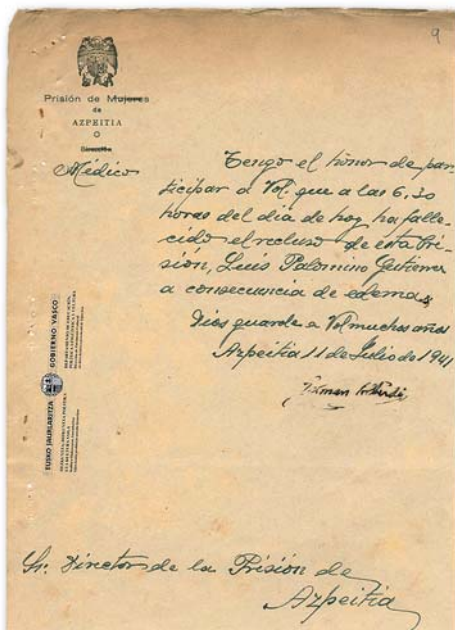 9
Prisión de Mujeres
de
AZPEITIA
O
Dirección
Médico
Tengo el honor de par-
ticipar a Vd. que a las 6,30
horas del dia de hoy ha falle-
cido el recluso de esta Pri-
sión, Luis Palomino Gutierrez
a consecuencia de edemas
Dios guarde a Vd muchos años
Azpeitia 11 de Julio de 1941
EUSKO JAURLARITZA
GOBIERNO VASCO
Sr. Director de la Prisión de
Azpeitia